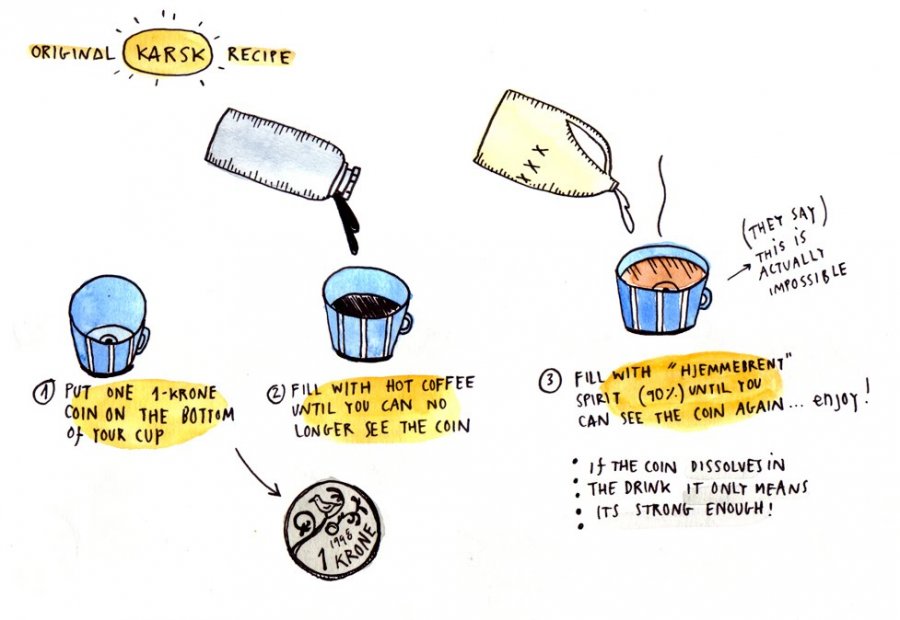 ORIGINAL KARSK RECIPE
XXX
(THEY SAY)
THIS IS
ACTUALLY
IMPOSSIBLE
1 PUT ONE 1-KRONE
COIN ON THE BOTTOM
OF YOUR CUP
2 FILL WITH HOT COFFEE
UNTIL YOU CAN NO
LONGER SEE THE COIN
3 FILL WITH "HJEMMEBRENT"
SPIRIT (90%) UNTIL YOU
CAN SEE THE COIN AGAIN... enjoy!
• If THE COIN DISSOLVES IN
• THE DRINK IT ONLY MEANS
• ITS STRONG ENOUGH!
•
1998
1 KRONE